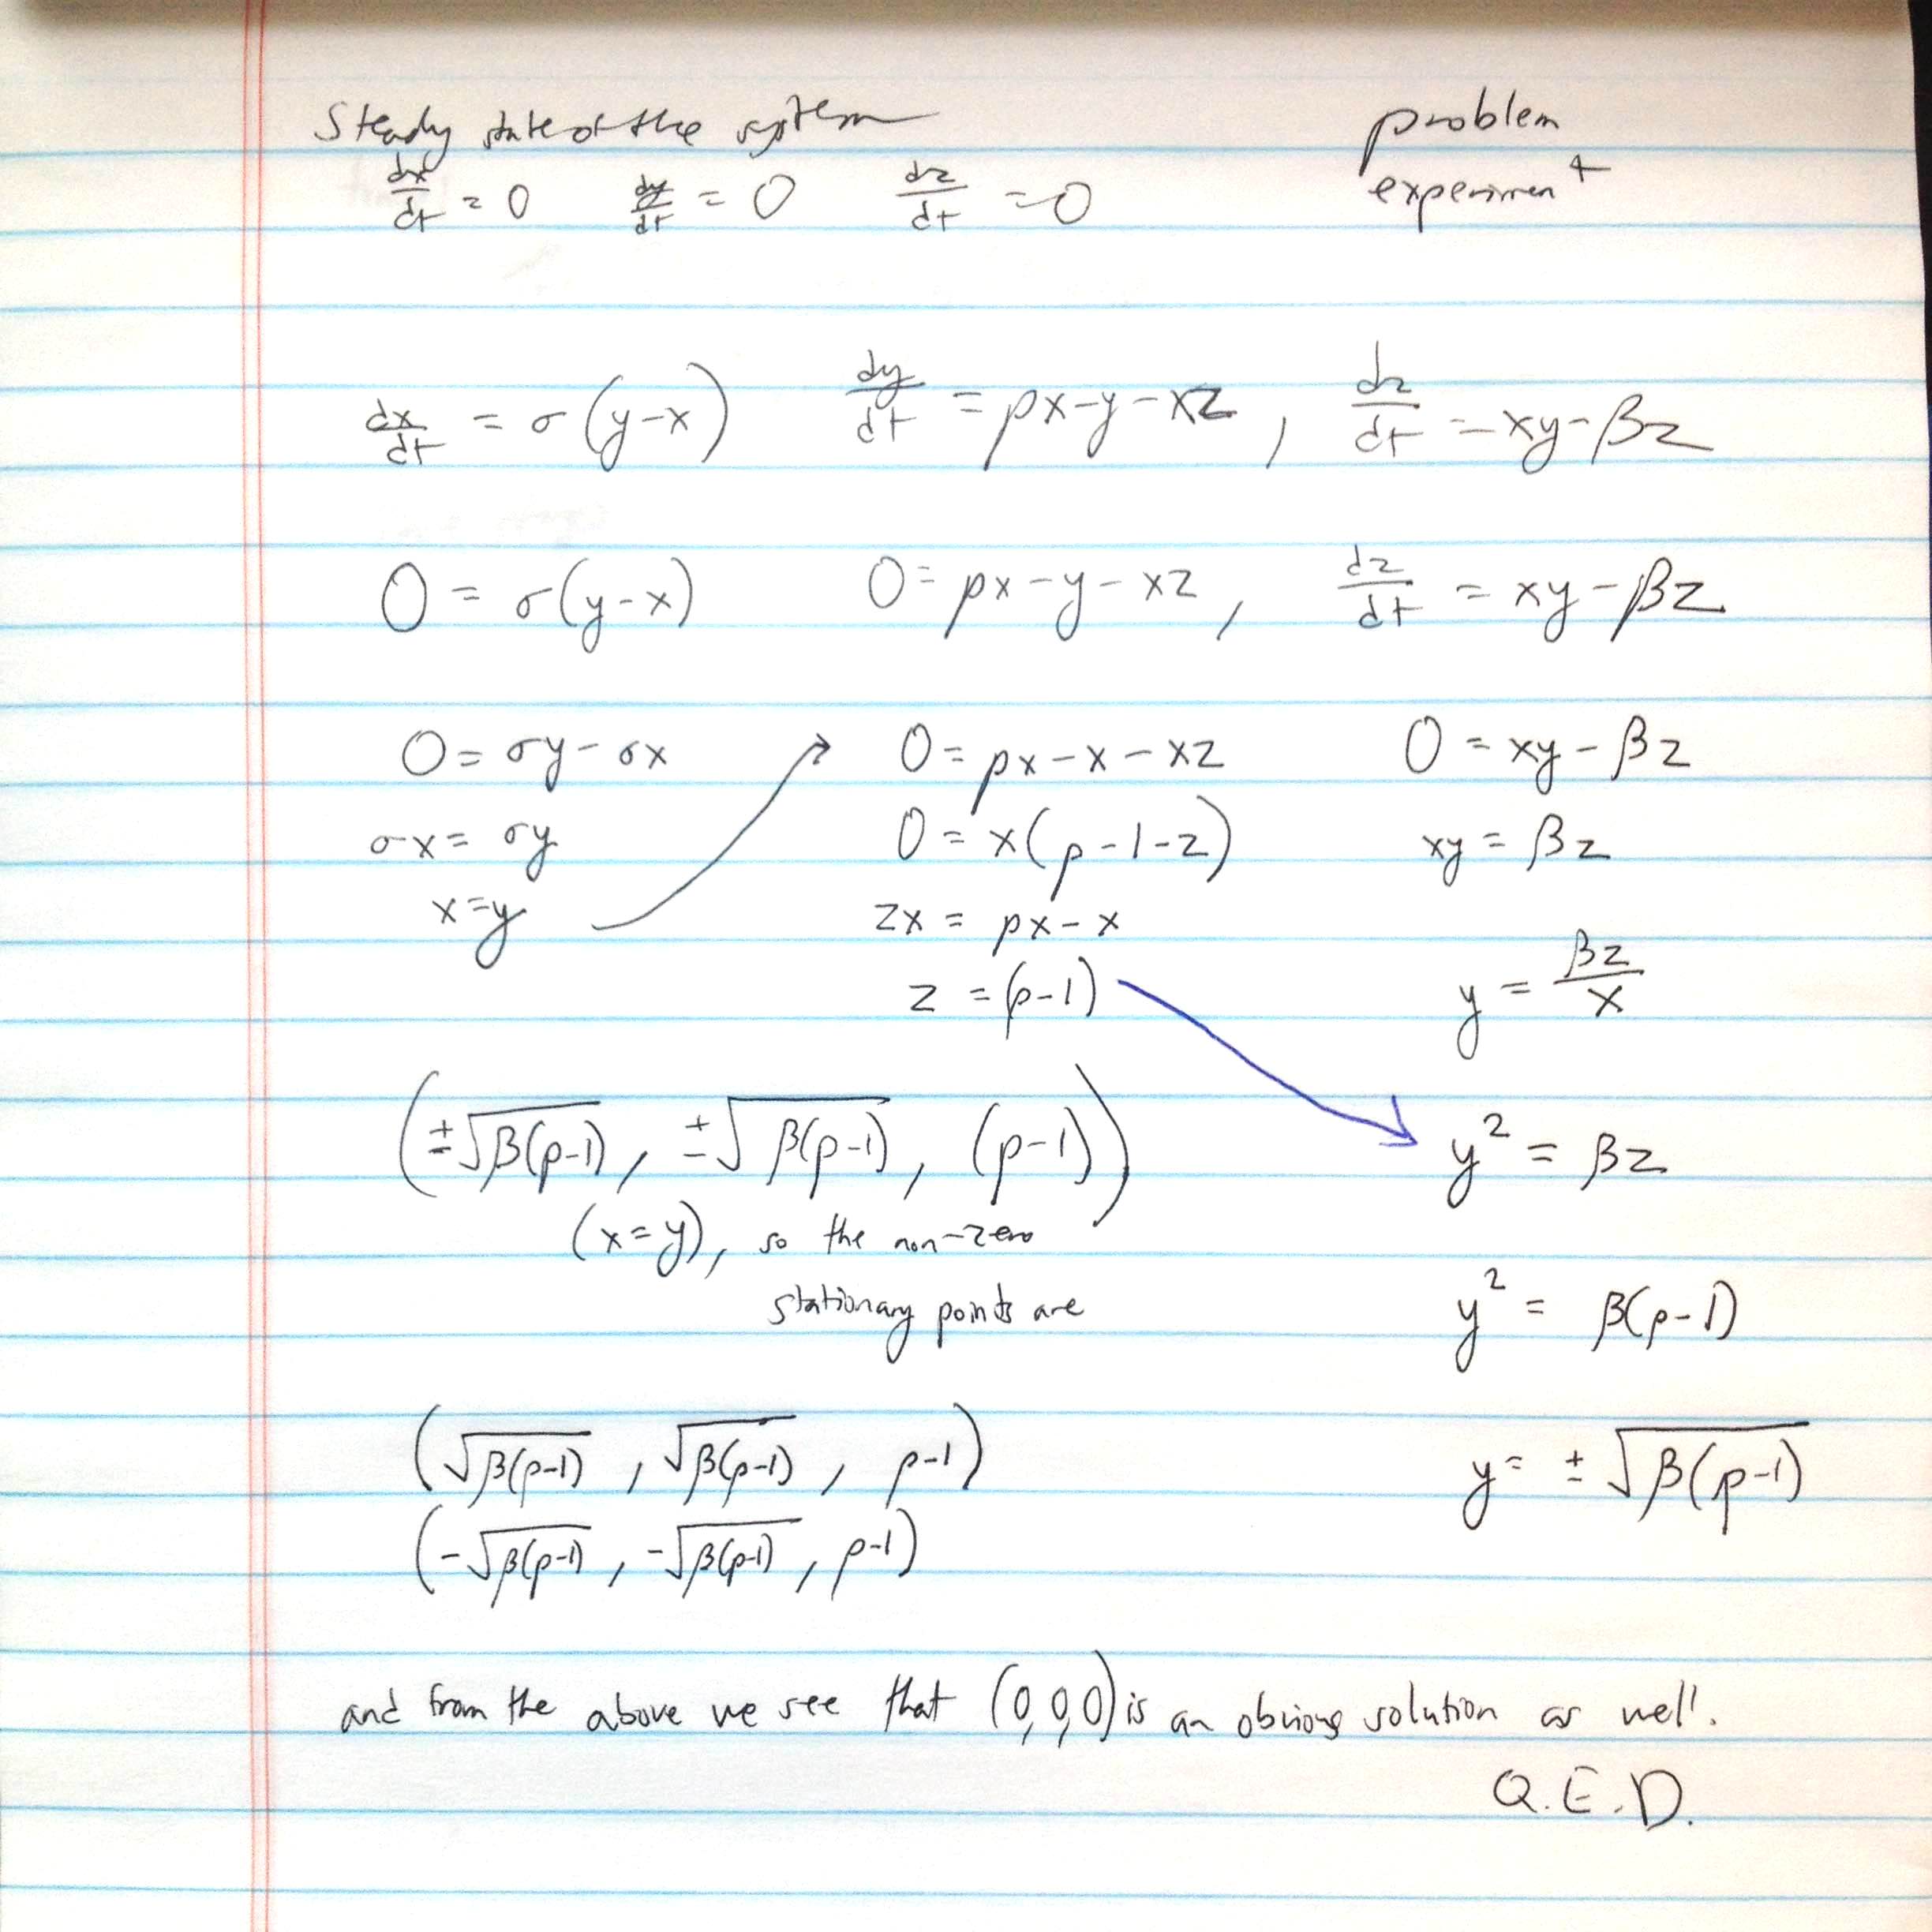 Steady state of the system
problem
experiment
dx/dt = 0 dy/dt = 0 dz/dt = 0
dx/dt = σ(y-x) dy/dt = ρx-y-xz , dz/dt = xy-βz
0 = σ(y-x) 0 = ρx-y-xz , dz/dt = xy-βz
0 = σy-σx 0 = ρx-x-xz 0 = xy-βz
σx = σy 0 = x(ρ-1-z) xy = βz
x=y zx = ρx-x
z = (ρ-1) y = βz/x
(±√β(ρ-1), ±√β(ρ-1), (ρ-1)) y² = βz
(x=y), so the non-zero
stationary points are y² = β(ρ-1)
(√β(ρ-1), √β(ρ-1), ρ-1) y = ±√β(ρ-1)
(-√β(ρ-1), -√β(ρ-1), ρ-1)
and from the above we see that (0,0,0) is an obvious solution as well.
Q.E.D.